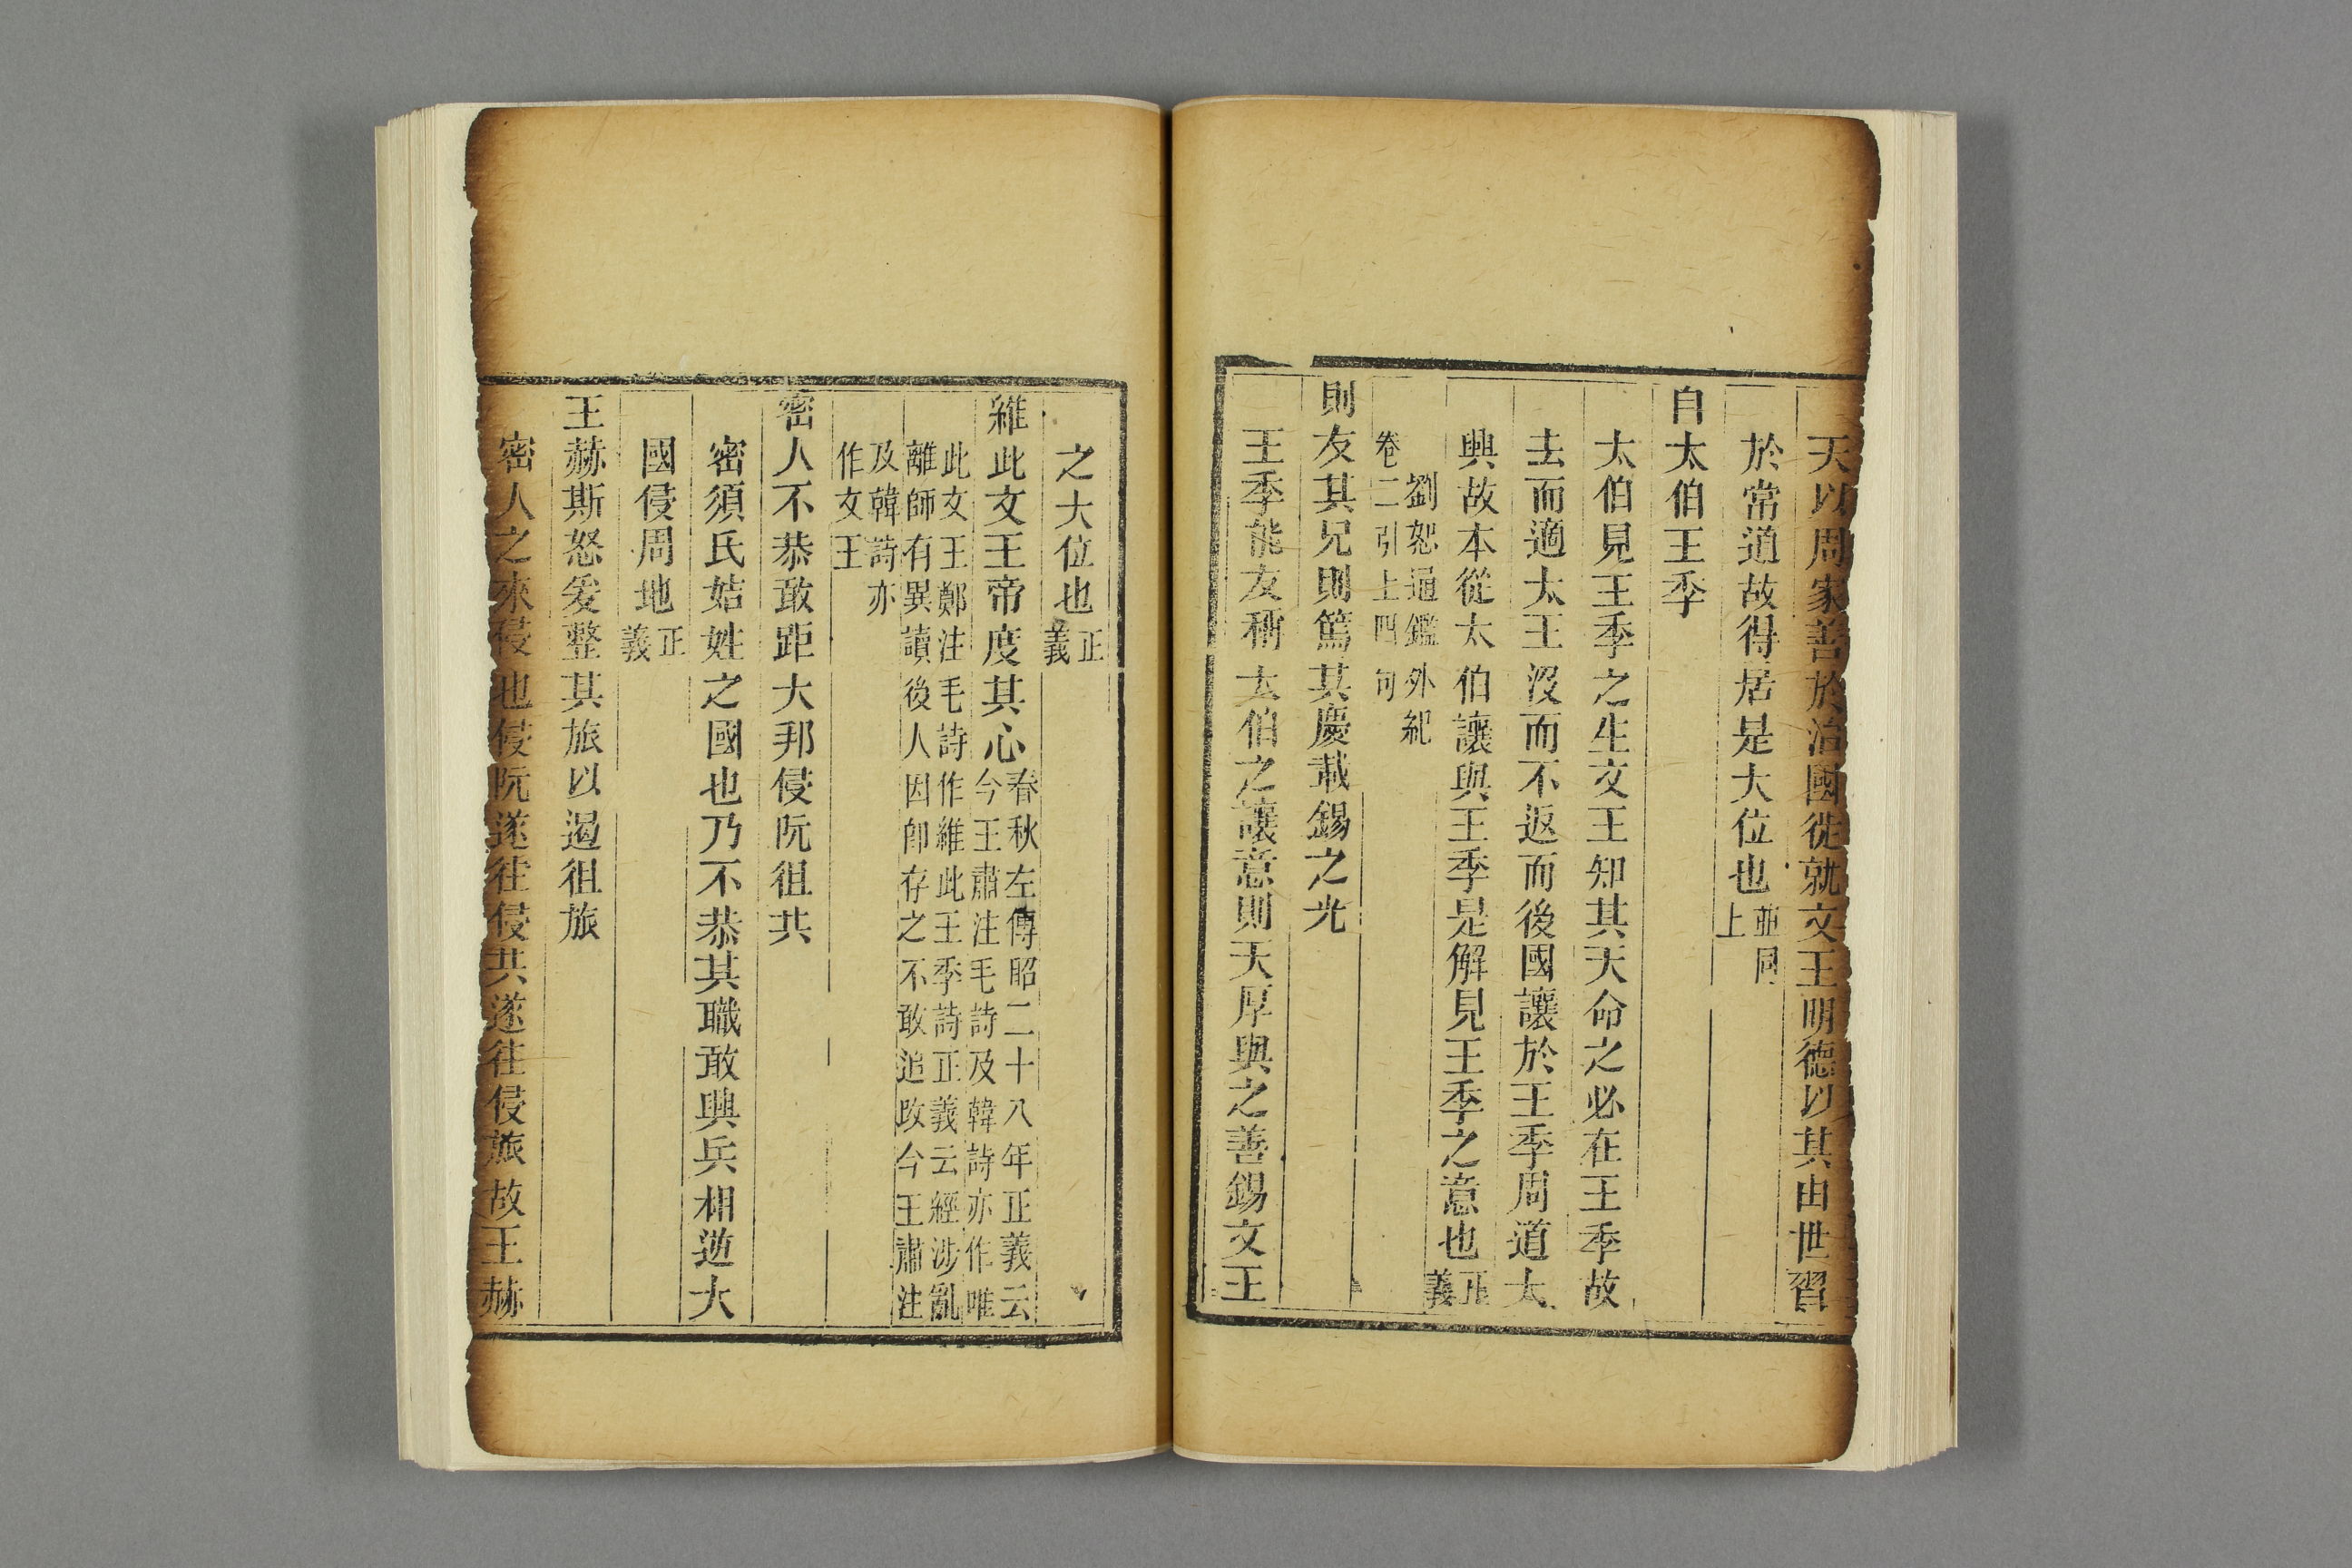 天以周家善於治國徙就文王明德以其由世習
於常道故得居是大位也並同
上
自太伯王季
太伯見王季之生文王知其天命之必在王季故
去而適太王沒而不返而後國讓於王季周道大
興故本從太伯讓與王季是解見王季之意也正
義
劉恕通鑑外紀
卷二引上四句
則友其兄則篤其慶載錫之光
王季能友稱太伯之讓意則天厚與之善錫文王
之大位也正
義
維此文王帝度其心春秋左傳昭二十八年正義云
今王肅注毛詩及韓詩亦作唯
此文王鄭注毛詩作維此王季詩正義云經涉亂
離師有異讀後人因卽存之不敢追改今王肅注
及韓詩亦
作文王
密人不恭敢距大邦侵阮徂共
密須氏姞姓之國也乃不恭其職敢興兵相逆大
國侵周地正
義
王赫斯怒爰整其旅以遏徂旅
密人之來侵也侵阮遂往侵共遂往侵旅故王赫